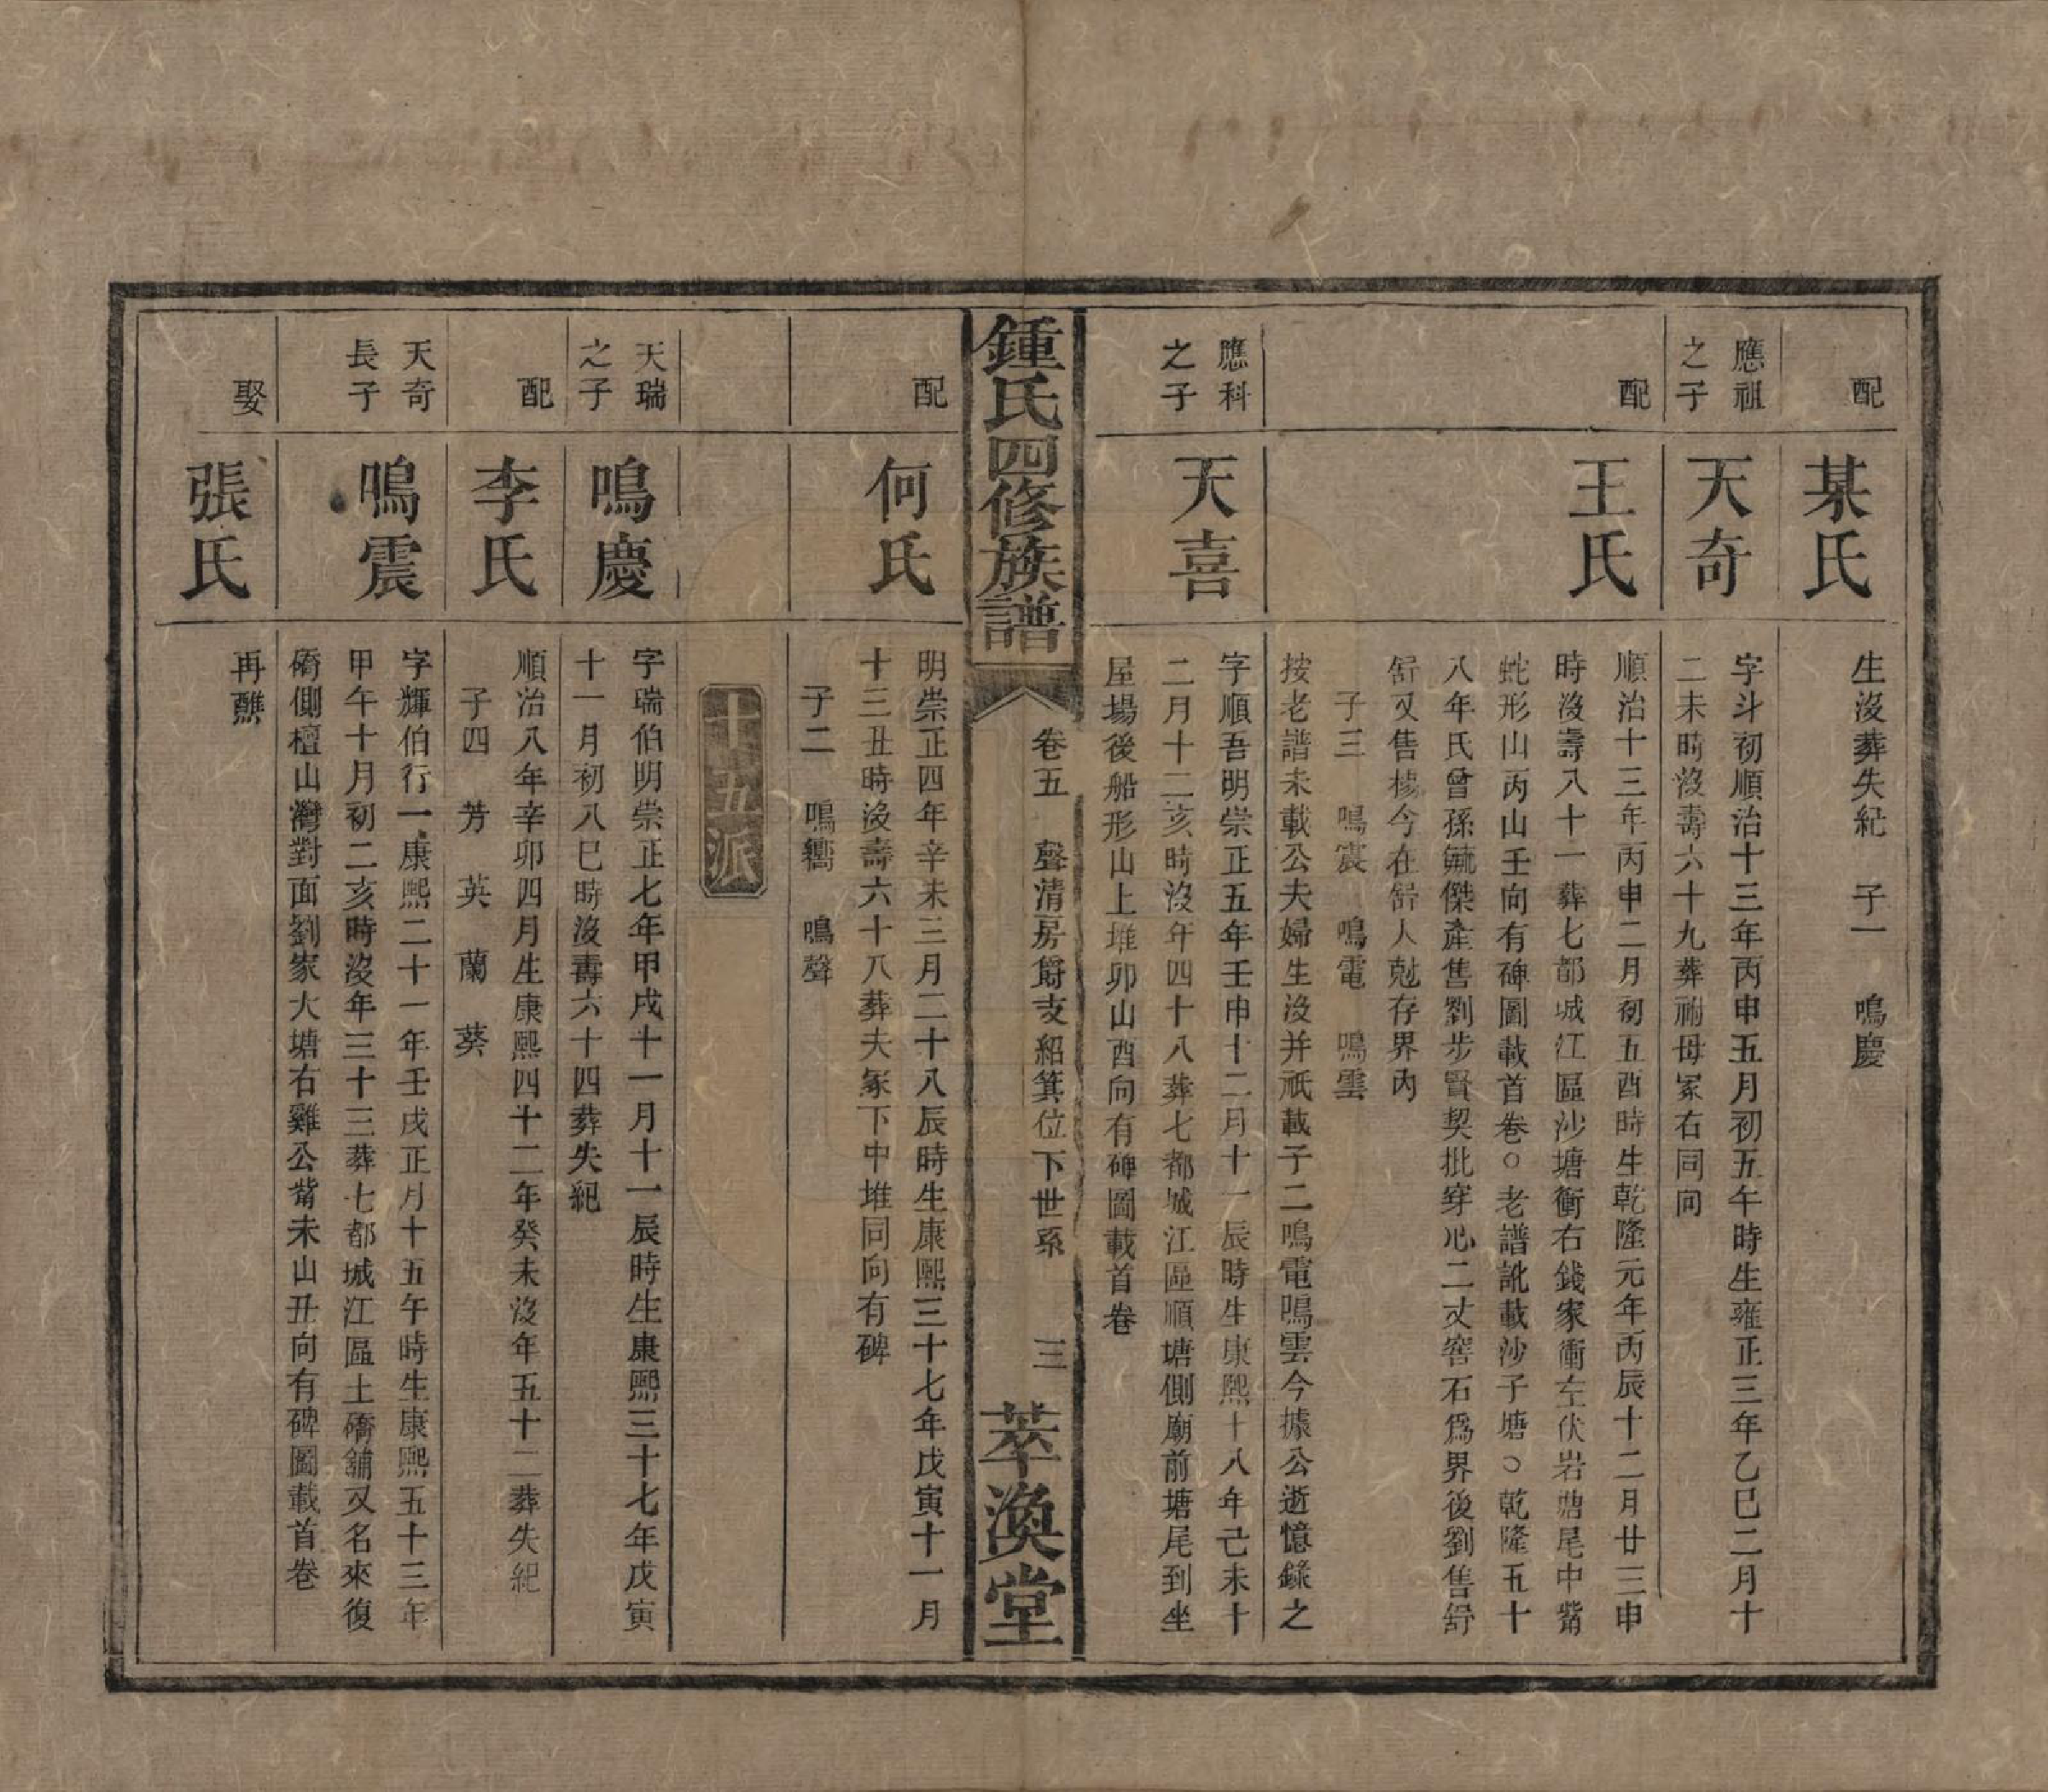 配
某氏
生沒葬失紀　子一　鳴慶
應祖
之子
天奇
字斗初順治十三年丙申五月初五午時生雍正三年乙巳二月十
二未時沒壽六十九葬祔母冢右同向
配
王氏
順治十三年丙申二月初五酉時生乾隆元年丙辰十二月廿三申
時沒壽八十一葬七都城江區沙塘衝右錢家衝左伏岩塘尾中嘴
蛇形山丙山壬向有碑圖載首卷○老譜訛載沙子塘○乾隆五十
八年氏曾孫毓傑產售劉步賢契批穿心二丈窖石爲界後劉售舒
舒又售楊今在舒人尅存界內
子三　鳴震　鳴電　鳴雲
按老譜未載公夫婦生沒并祇載子二鳴電鳴雲今據公逝憶錄之
應科
之子
天喜
字順吾明崇正五年壬申十二月十一辰時生康熙十八年己未十
二月十二亥時沒年四十八葬七都城江區順塘側廟前塘尾到坐
屋場後船形山上堆卯山酉向有碑圖載首卷
鍾氏四修族譜
卷五　聲清房爵支紹箕位下世系　三
萃渙堂
配
何氏
明崇正四年辛未三月二十八辰時生康熙三十七年戊寅十一月
十三丑時沒壽六十八葬夫冢下中堆同向有碑
子二　鳴嚮　鳴聲
十五派
天瑞
之子
鳴慶
字瑞伯明崇正七年甲戌十一月十一辰時生康熙三十七年戊寅
十一月初八巳時沒壽六十四葬失紀
配
李氏
順治八年辛卯四月生康熙四十二年癸未沒年五十二葬失紀
子四　芳　英　蘭　葵
天奇
長子
鳴震
字輝伯行一康熙二十一年壬戌正月十五午時生康熙五十三年
甲午十月初二亥時沒年三十三葬七都城江區土礄舖又名來復
礄側檀山灣對面劉家大塘右雞公嘴未山丑向有碑圖載首卷
娶
張氏
再醮